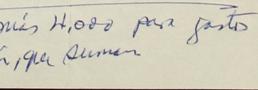 más 4,000 para gastos
, que suman